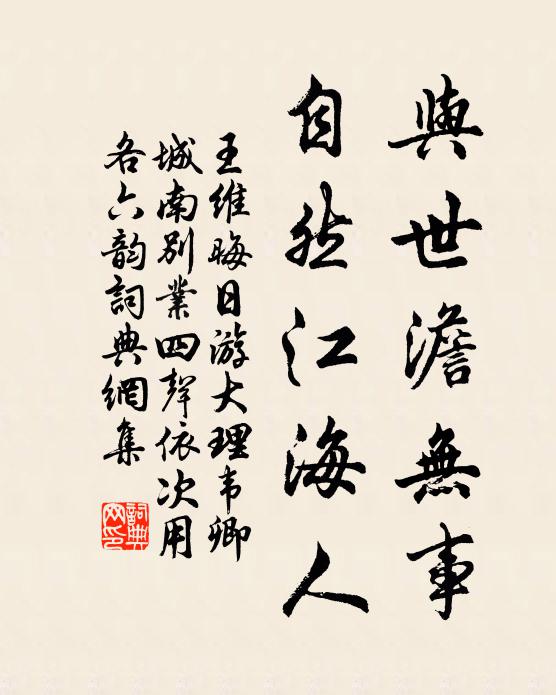 與世澹無事
自然江海人
王維晦日游大理韦卿
城南別業四聲依次用
各六韵詞典網集
詞典
网印